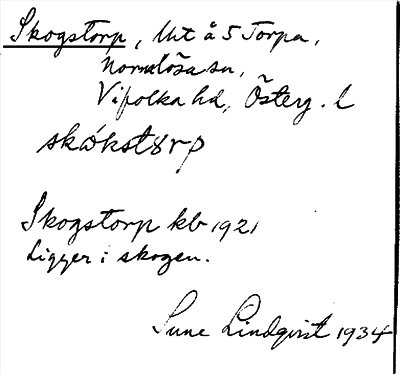 Skogstorp, lht å 5 Torpa,
Normlösa sn,
Vifolka hd, Österg. l
skókstørp
Skogstorp kb 1921
Ligger i skogen.
Sune Lindqvist 1934